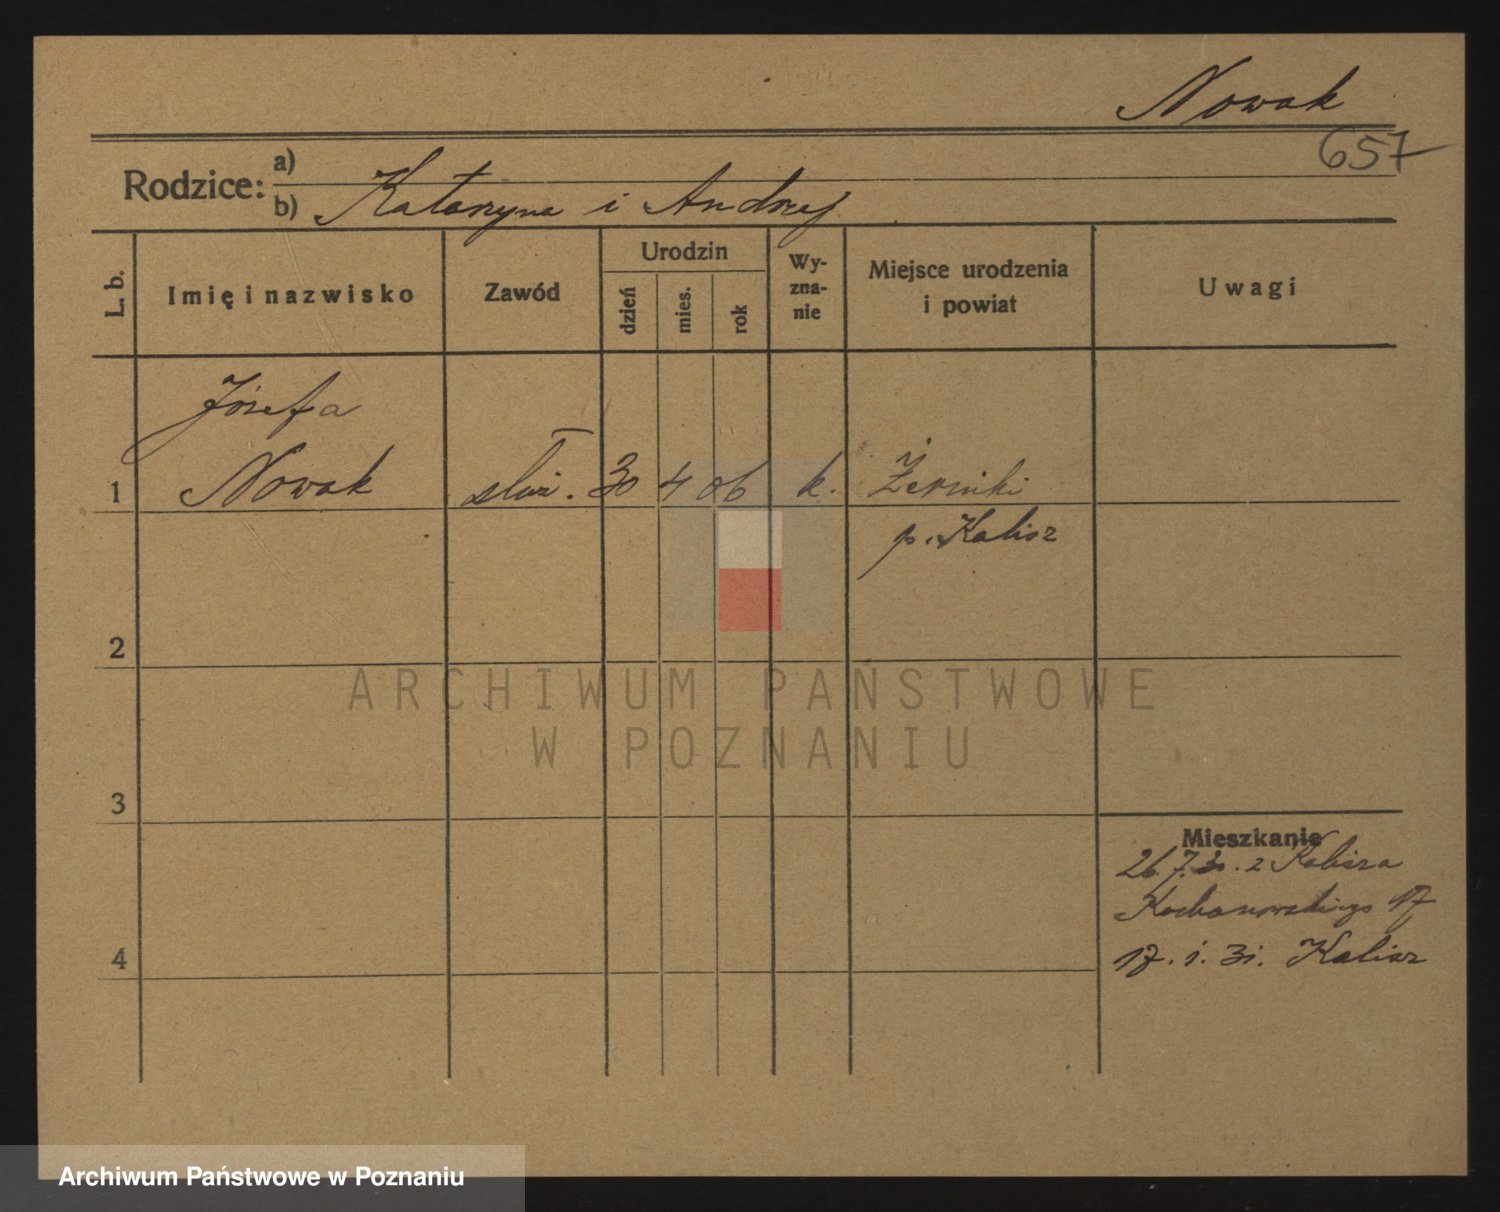 Nowak
657
Rodzice: a)
b) Katarzyna i Andrzej
L. b.
Imię i nazwisko
Zawód
Urodzin
dzień
mies.
rok
Wy-
zna-
nie
Miejsce urodzenia
i powiat
Uwagi
Józefa
1 Nowak służ. 30 4 06 k. Żerniki
p. Kalisz
2
3
4
Mieszkanie
26.7.30. z Kalisza
Kochanowskiego 17
17. 1. 31. Kalisz
ARCHIWUM PAŃSTWOWE
W POZNANIU
Archiwum Państwowe w Poznaniu